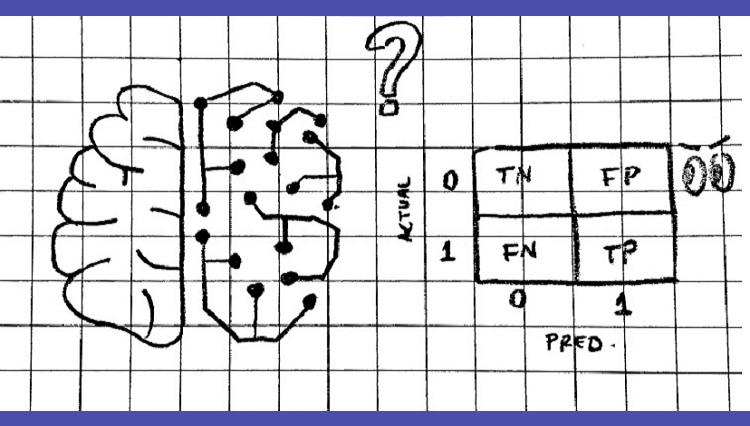 ?
ACTUAL
0 TN FP
1 FN TP
0 1
PRED.